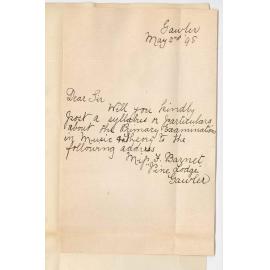 Gawler
May 2nd '95
Dear Sir
Will you kindly
post a syllabus & particulars
about the Primary Examination
in Music & Theory to the
following address
Miss F. Barnet
Pine Lodge
Gawler